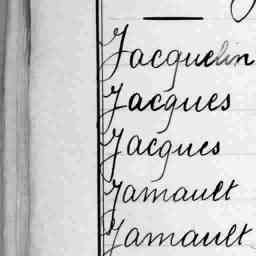 Jacquelin
Jacques
Jacques
Jamault
Jamault